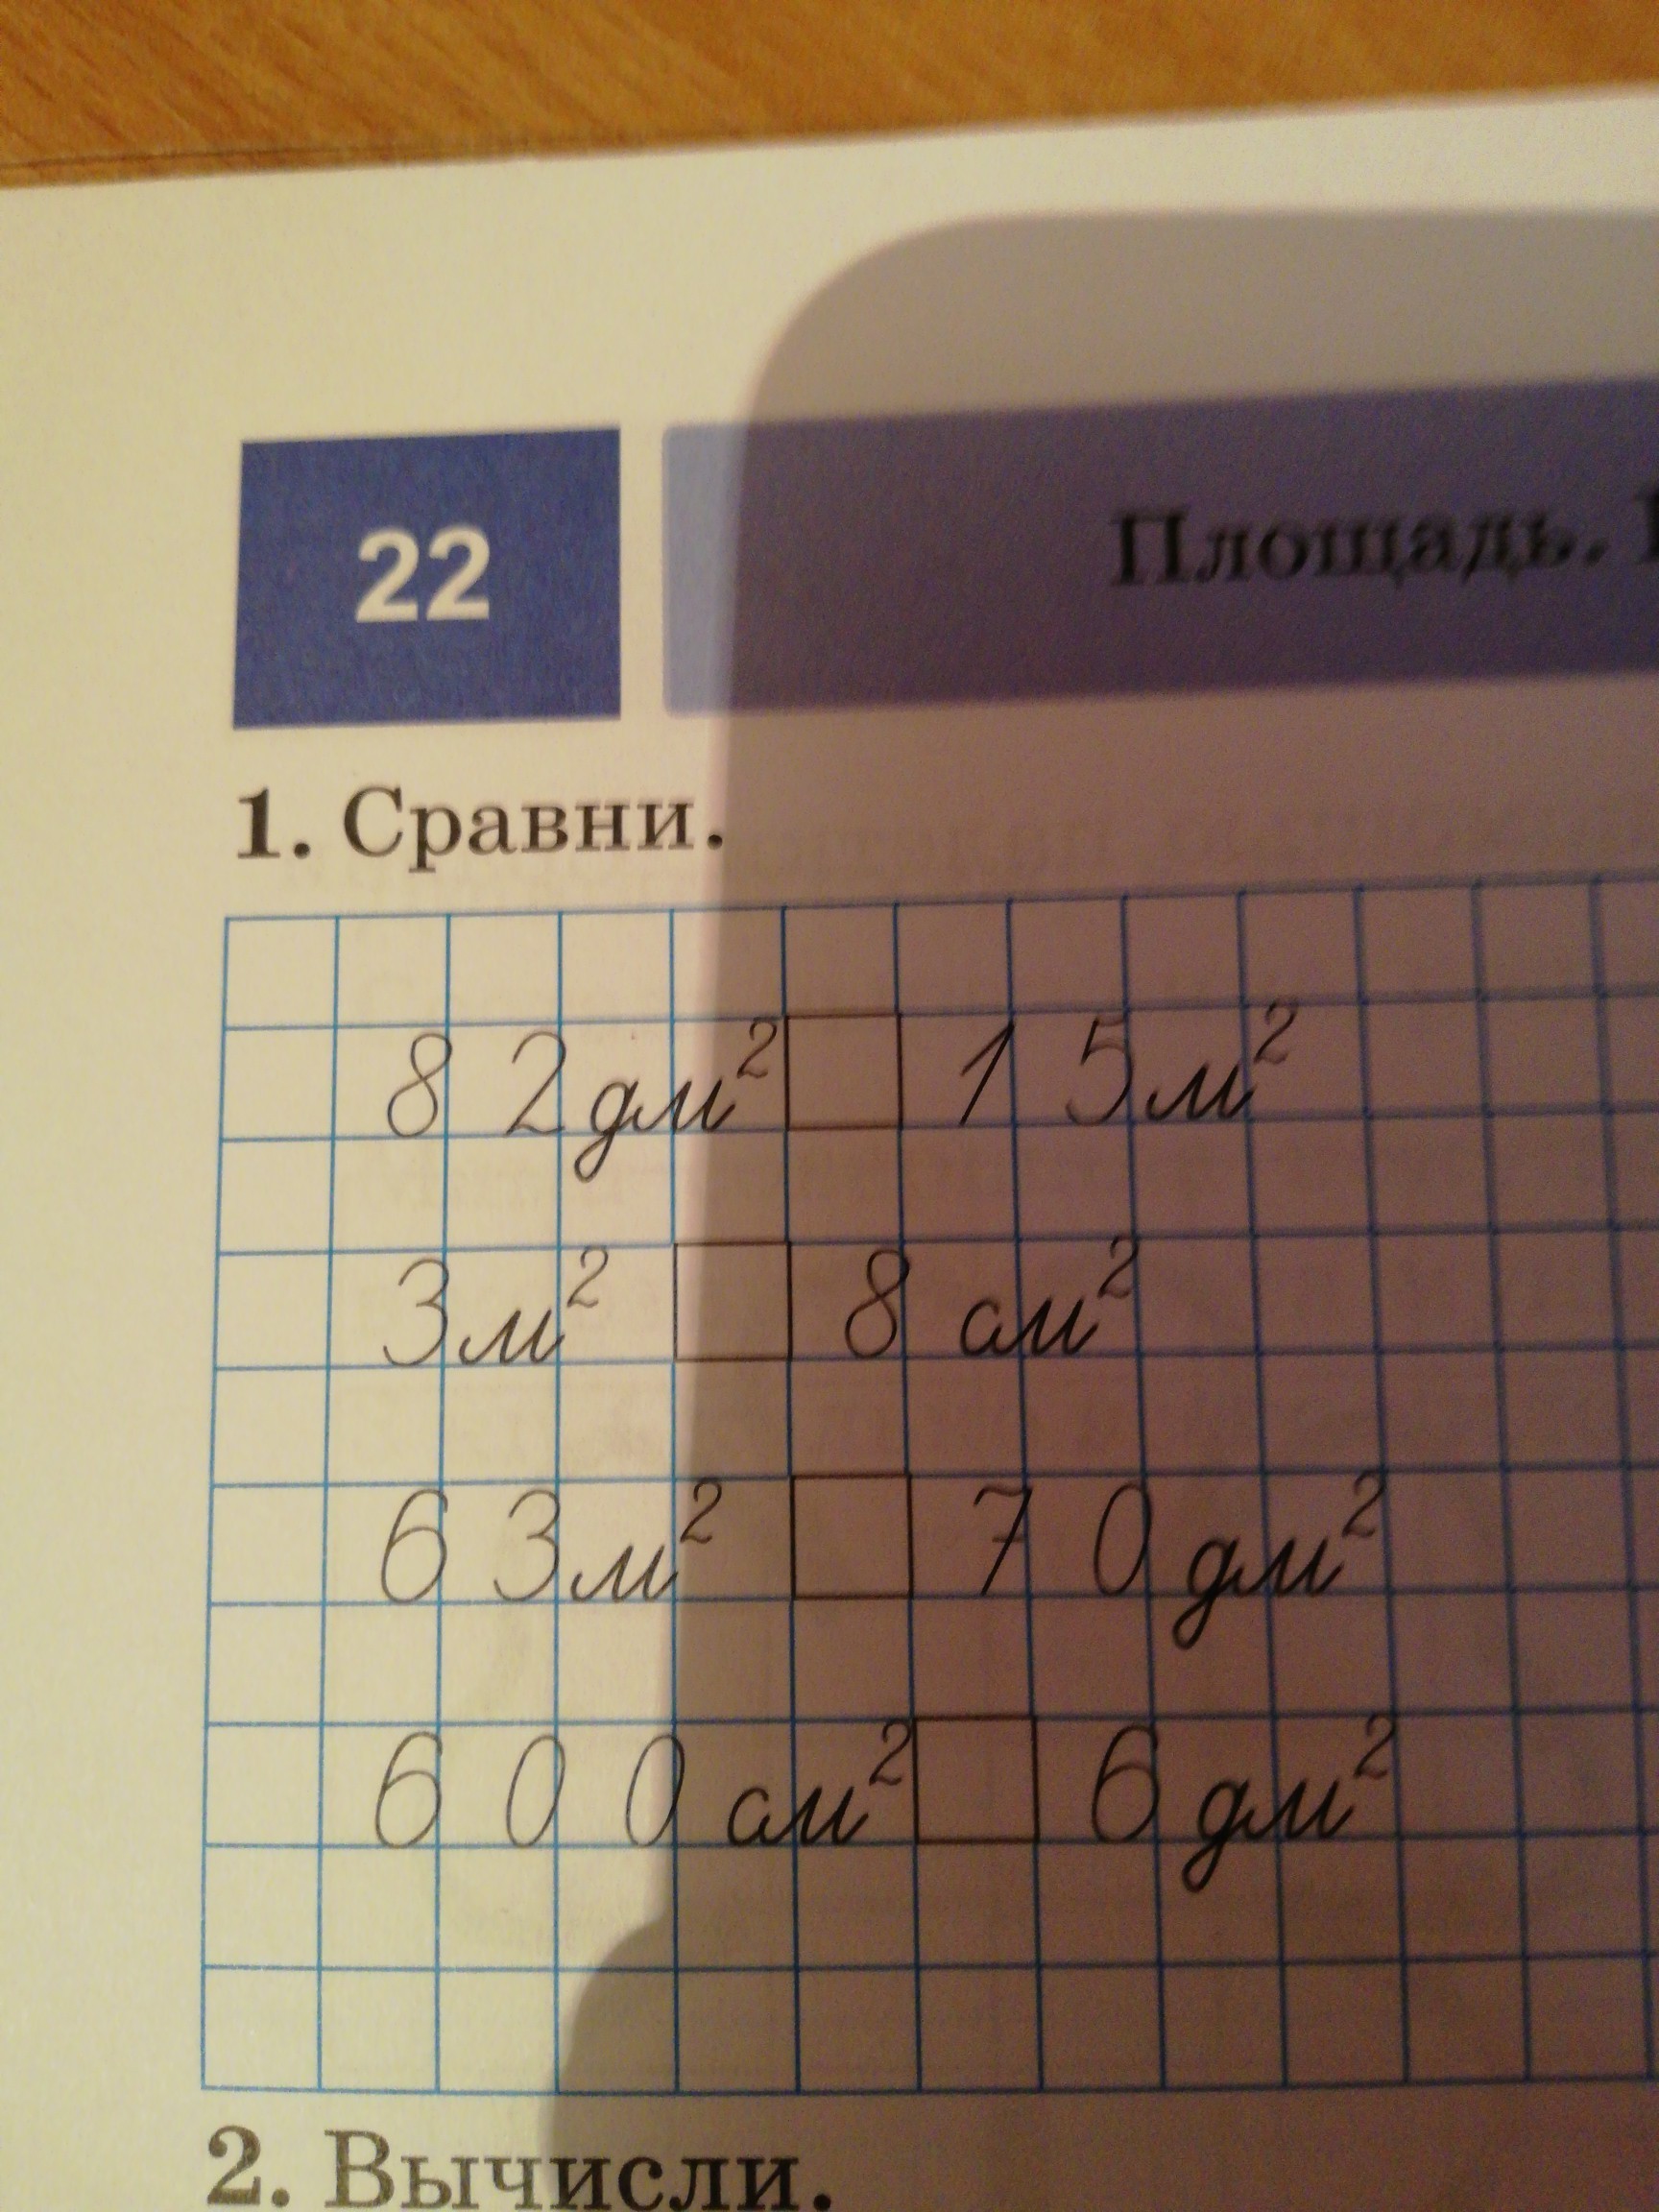 22
Площадь.
1. Сравни.
82 дм² □ 15 м²
3 м² □ 8 см²
63 м² □ 70 дм²
600 см² □ 6 дм²
2. Вычисли.